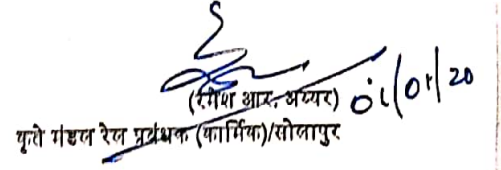 (रमेश आर. अय्यर) 01/01/20
कृते मंडल रेल प्रबंधक (कार्मिक)/सोलापुर